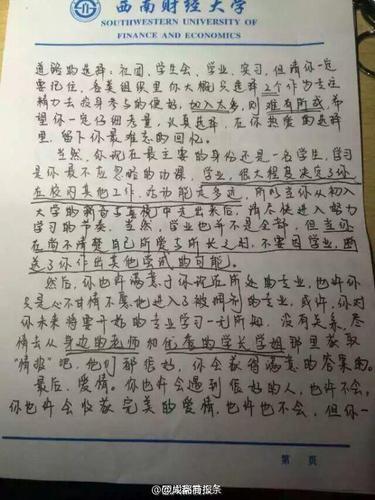 西南财经大学
SOUTHWESTERN UNIVERSITY OF
FINANCE AND ECONOMICS
道路的选择：社团、学生会、学业、实习，但请你一定
要记住，各类组织里你大概只选择2个作为专注
精力去投身者多的便好，加入太多，则难有所成，希
望你一定仔细考量，认真选择，在你热爱的选择
里，留下你最难忘的回忆。
当然，你现在最主要的身份还是一名学生，学习
是你最不应忽略的功课，学业，很大程度决定了你
在校内其他工作、活动能走多远，所以当你从初入
大学的新奇与喜悦中走出来后，请尽快进入努力
学习的节奏。当然，学业也并不是全部，但当你
在尚不清楚自己所爱与所长之时，不要因学业，断
送了你作出其他尝试的可能。
然后，你也许满意于你现在所处的专业，也许你
只是心不甘情不愿地进入了被调剂的专业，或许，你对
你未来将要开始的专业学习一无所知，没有关系，尽
情去从身边的老师和优秀的学长学姐那里获取
“情报”吧，他们都很好，你会获得满意的答案的。
最后，爱情。你也许会遇到很好的人，也许不会，
你也许会收获完美的爱情，也许也不会，但你一
第 页